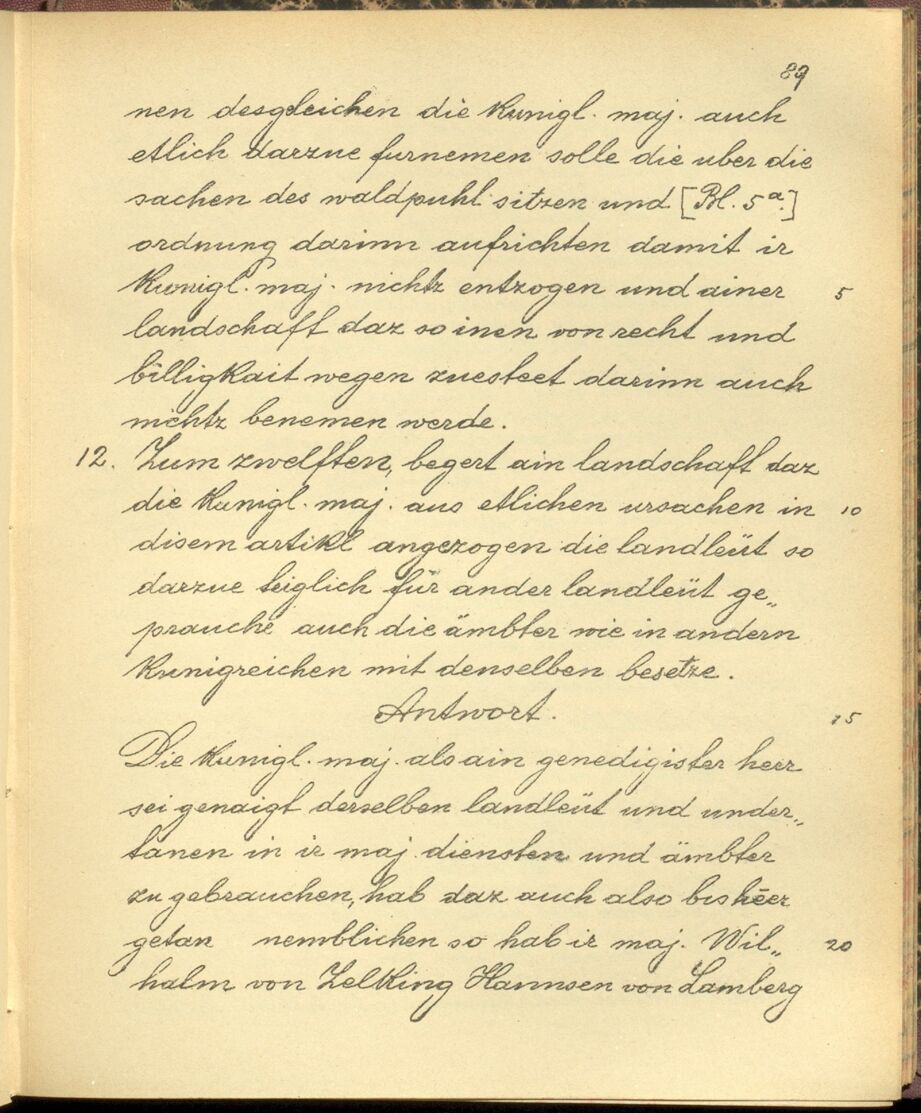 89
nen desgleichen die kunigl. maj. auch
etlich darzue furnemen solle die uber die
sachen des waldpuhl sitzen und [Bl. 5a.]
ordnung darinn aufrichten damit ir
kunigl. maj. nichtz entzogen und ainer 5
landschaft daz so inen von recht und
billigkait wegen zuesteet darinn auch
nichtz benemen werde.
12. Zum zwelften, begert ain landschaft daz
die kunigl. maj. aus etlichen ursachen in 10
disem artikl angezogen die landleüt so
darzue teiglich für ander landleüt ge„
prauche auch die ämbter wie in andern
kunigreichen mit denselben besetze.
Antwort. 15
Die kunigl. maj. als ain genedigister herr
sei genaigt derselben landleüt und under„
tanen in ir maj. diensten und ämbter
zu gebrauchen, hab daz auch also bisheer
getan nemblichen so hab ir maj. Wil„ 20
halm von Zelking Hannsen von Lamberg